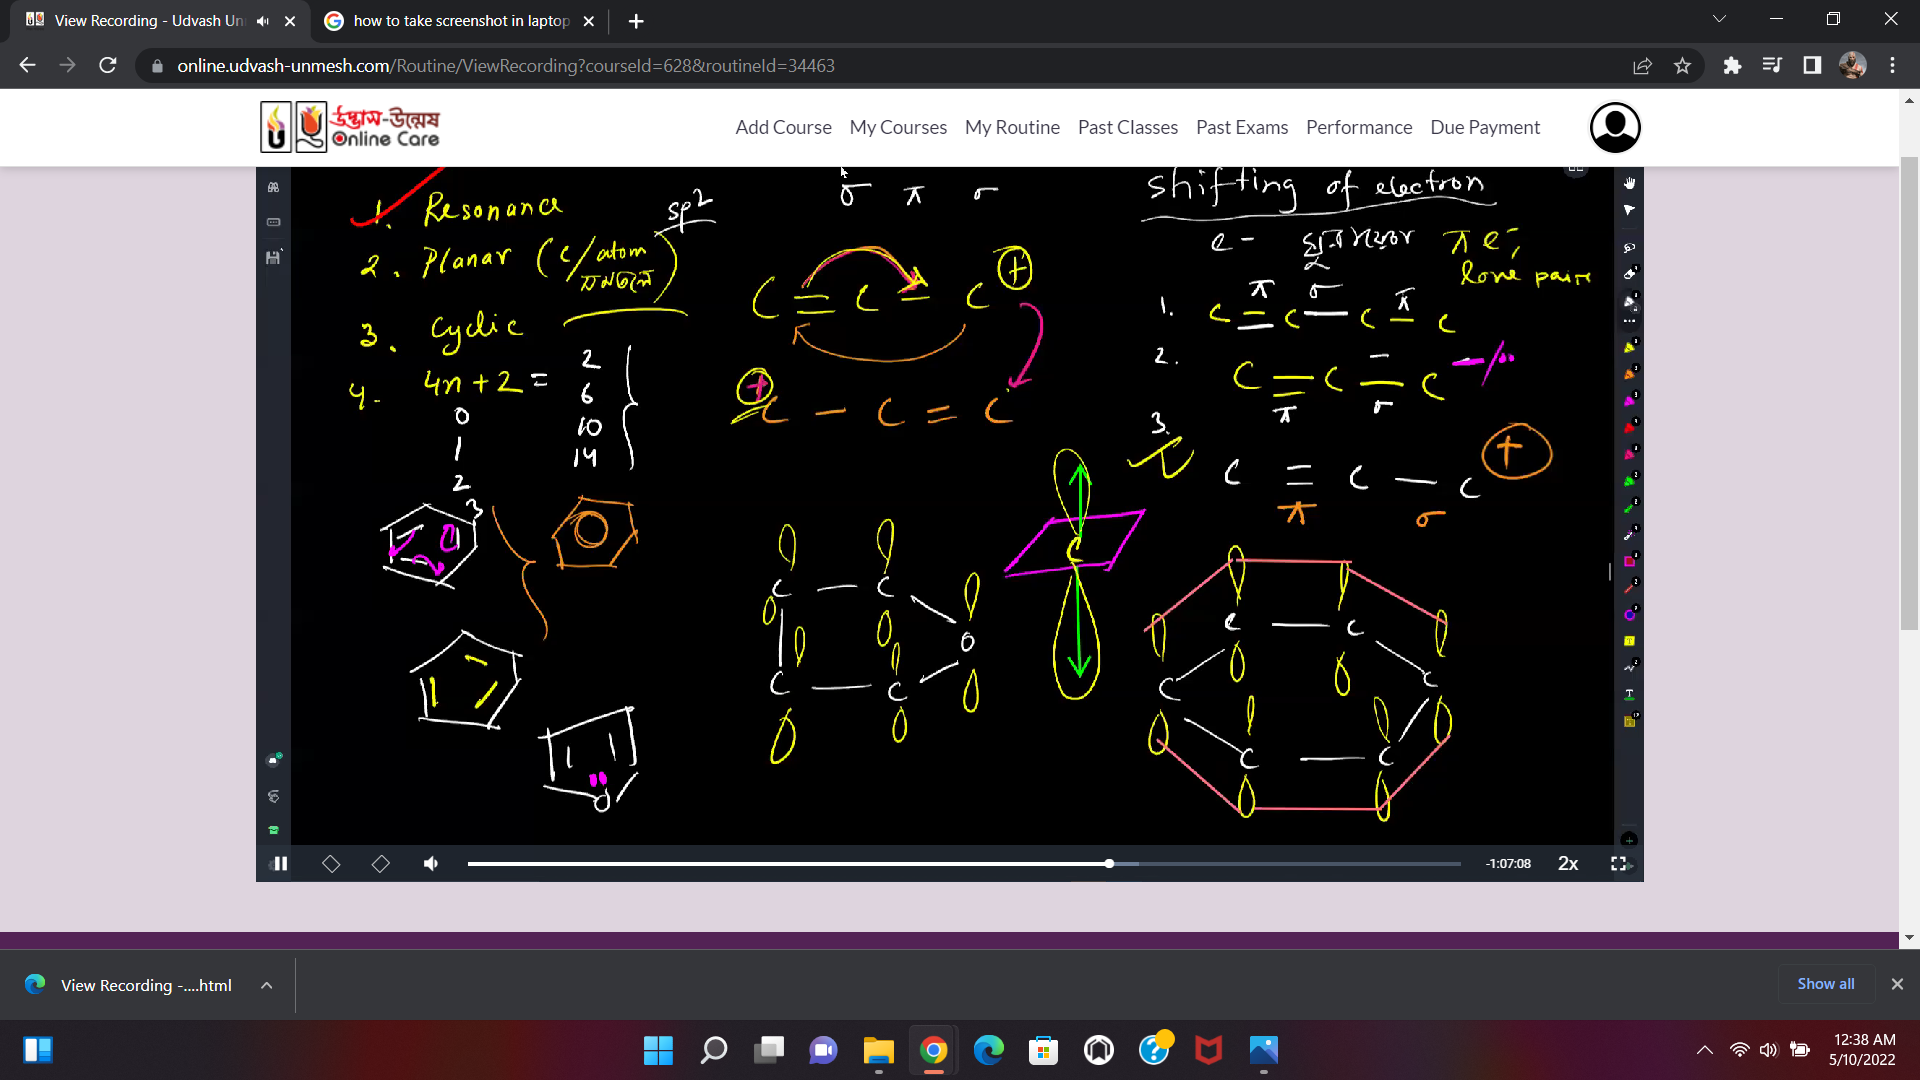 View Recording - Udvash Un
how to take screenshot in laptop
online.udvash-unmesh.com/Routine/ViewRecording?courseId=628&routineId=34463
উদ্ভাস-উন্মেষ
Online Care
Add Course My Courses My Routine Past Classes Past Exams Performance Due Payment
1. Resonance
sp2
2. Planar (C/atom
3. Cyclic
4. 4n+2 =
2
6
10
14
0
1
2
3
σ π σ
C = C = C +
+ C - C = C
shifting of electron
e-
π e-,
lone pair
π σ π
1. C = C - C = C
2. C = C - C
π σ
3.
C = C - C +
π σ
C
C C
C C
O
C C
C C
C C
C C
O
-1:07:08 2x
View Recording -....html
Show all
12:38 AM
5/10/2022